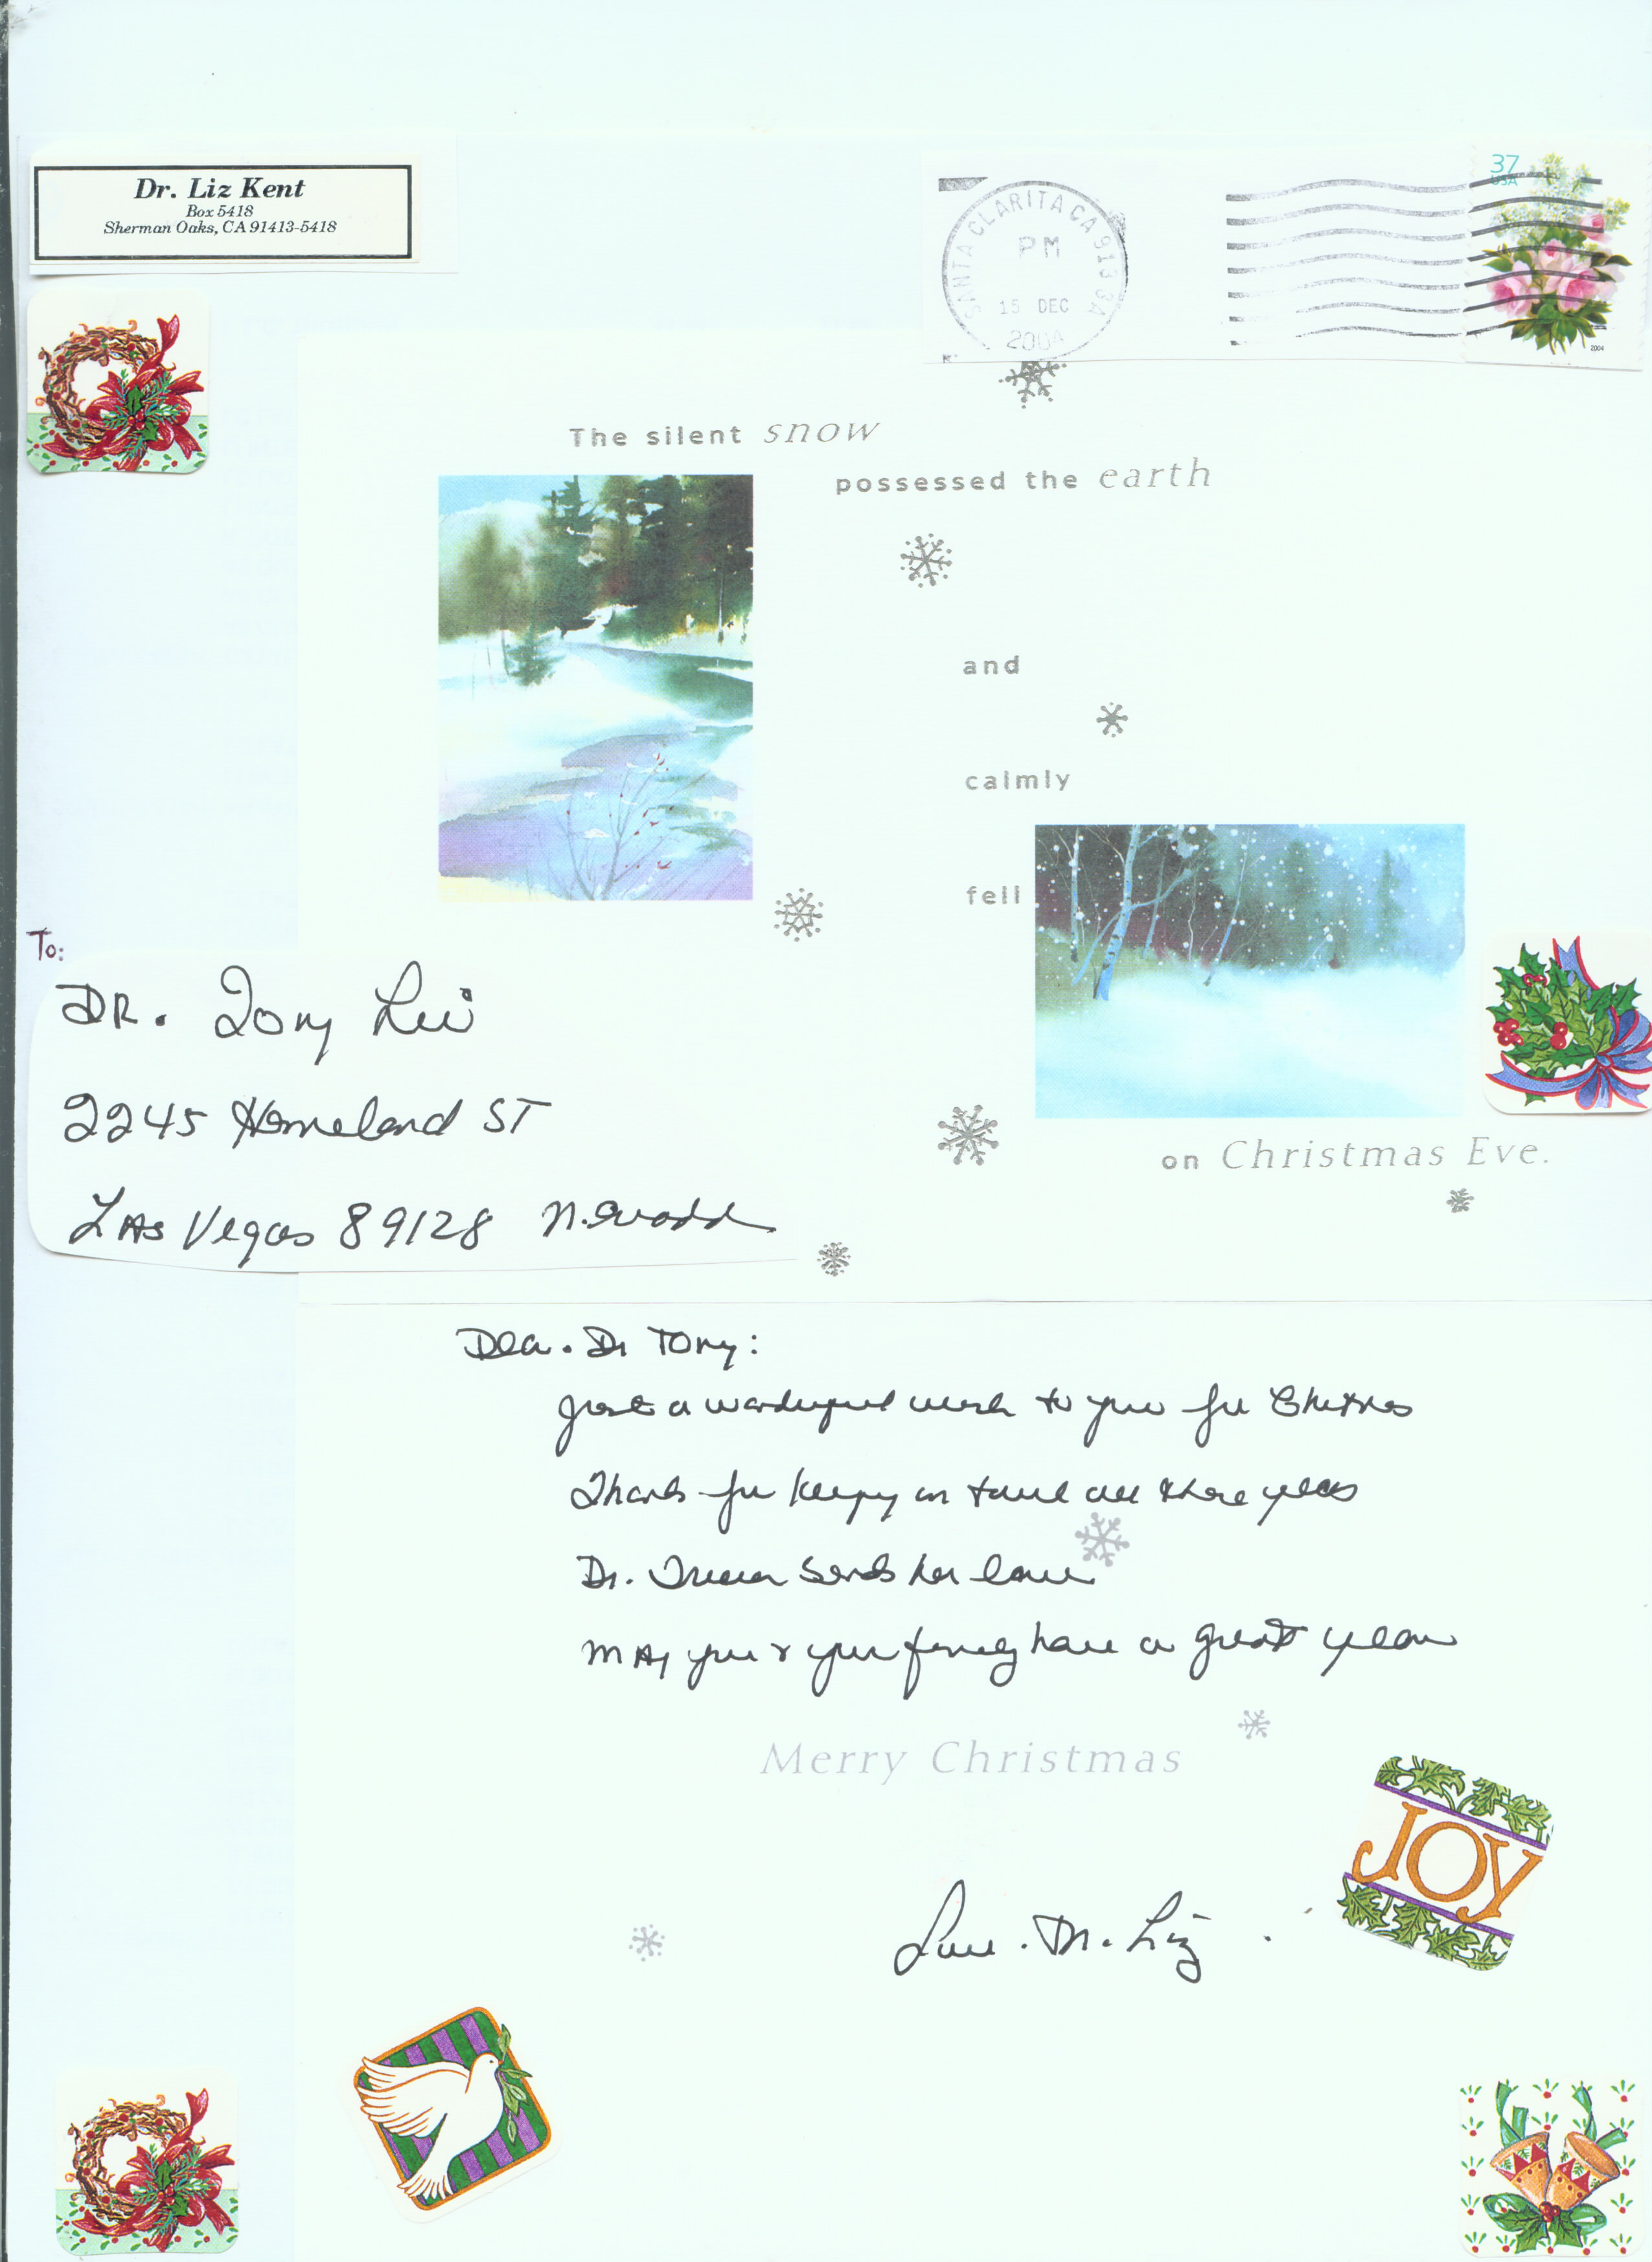 Dr. Liz Kent
Box 5418
Sherman Oaks, CA 91413-5418
SANTA CLARITA CA 913 3A
PM
15 DEC
2004
37
USA
2004
The silent snow
possessed the earth
and
calmly
fell
on Christmas Eve.
To:
DR. Tony Lei
2245 Homeland ST
LAS Vegas 89128 Nevada
Dear Dr Tony:
Just a wonderful wish to you for Christmas
Thanks for keeping in touch all these years
Dr. sends her love
MAy you & your family have a great year
Merry Christmas
Love. Dr. Liz.
JOY